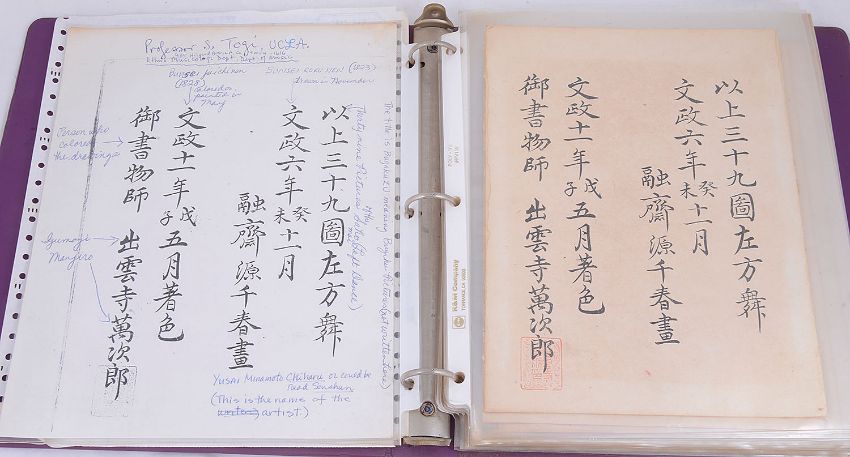 Professor S. Togi, UCLA.
BUNSEI juichinen
(1828)
painted in
May
BUNSEI ROKUNEN (1823)
drawn in November
Person who
colored
the drawings
Izumoji
Manjiro
The title is Bugakuzu meaning Bugaku Pictures (not written here)
Thirty nine Pictures Saho (Left Dance)
以上三十九圖左方舞
文政六年癸未十一月
融齋源千春畫
文政十一年戊子五月著色
御書物師 出雲寺萬次郎
YUSAI Minamoto Chiharu or could be
read Senshun
(This is the name of the
artist.)
K&M Company
以上三十九圖左方舞
文政六年癸未十一月
融齋源千春畫
文政十一年戊子五月著色
御書物師 出雲寺萬次郎